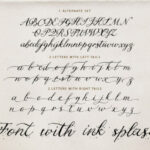 1 ALTERNATE SET
ABCDEFGHIJKLM
NOPQRSTUVWXYZ
abcdefghijklmnopqrstuvwxyz
2 LETTERS WITH LEFT TAILS
a b c d e f g h i j k l m
n o p q r s t u v w x y z
3 LETTERS WITH RIGHT TAILS
a b c d e f g h i j k l m
n o p q r s t u v w x y z
Font with ink splash